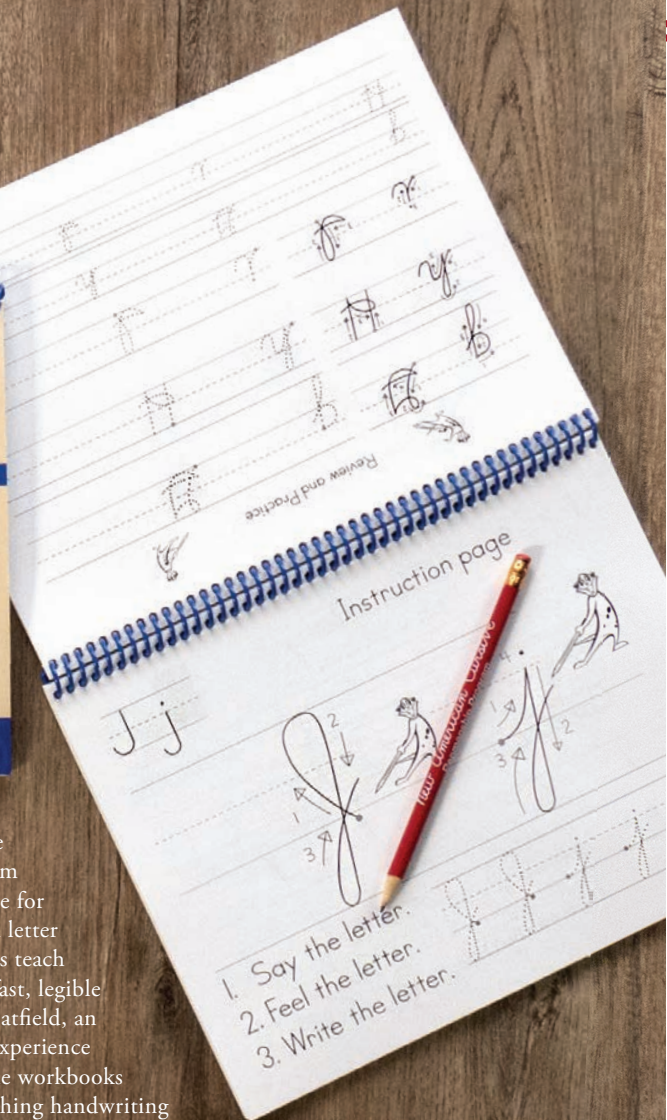 Review and Practice
Instruction page
J j
1
2
3
1
2
3
4
New American Cursive
1. Say the letter.
2. Feel the letter.
3. Write the letter.
e for
letter
s teach
fast, legible
atfield, an
xperience
e workbooks
ching handwriting